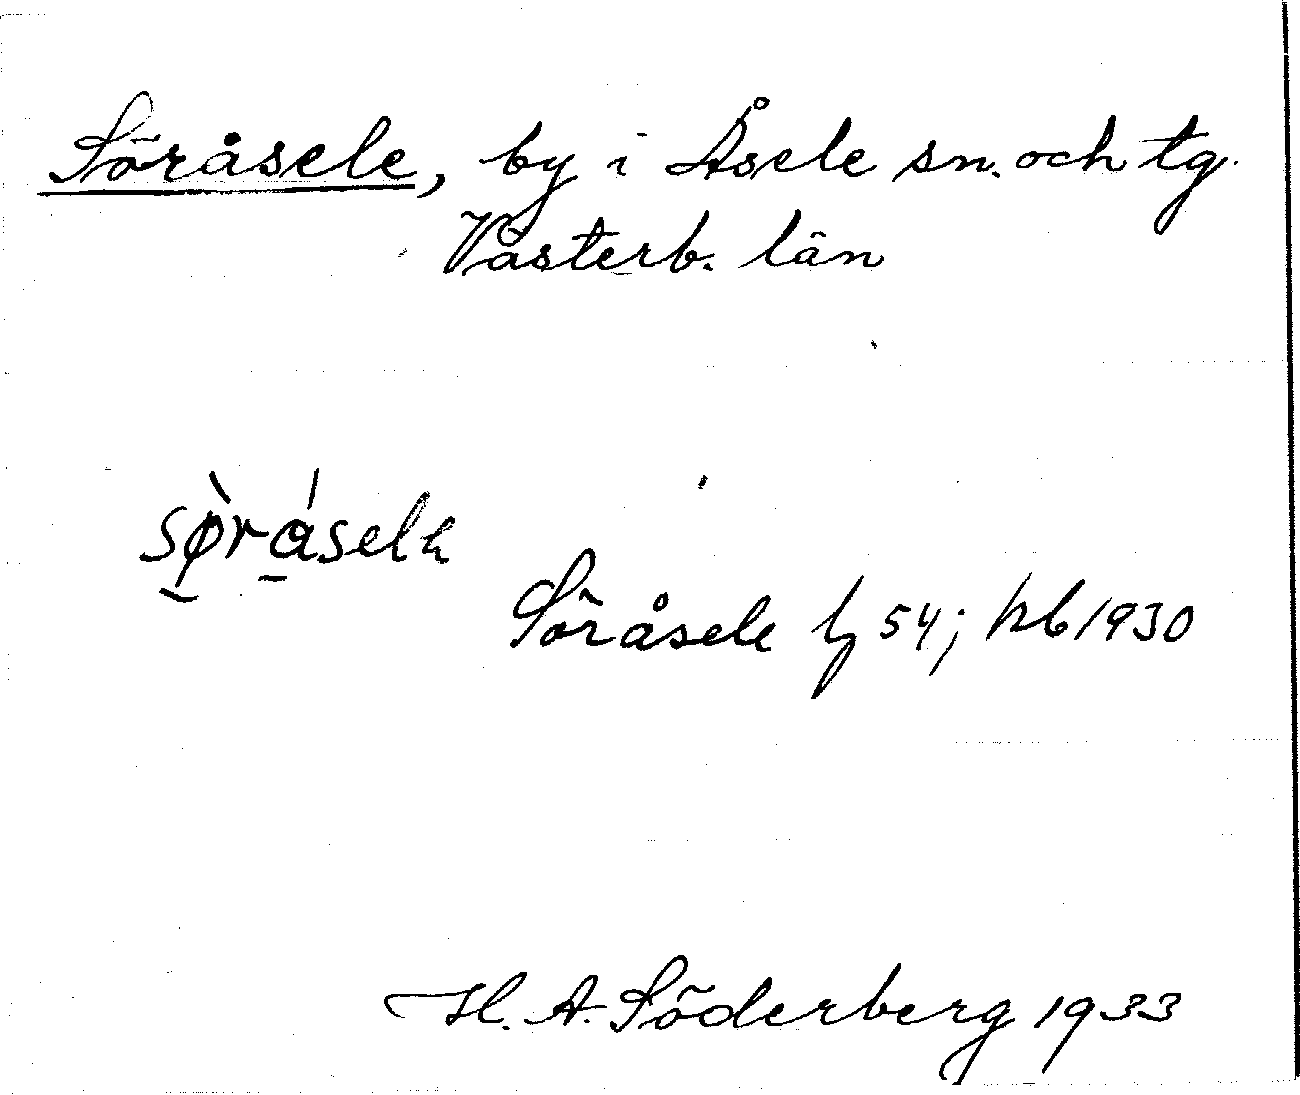 Söråsele, by i Åsele sn. och tg.
Västerb. län
sø̀råsel
Söråsele 54; 1930
H. A. Söderberg 1933